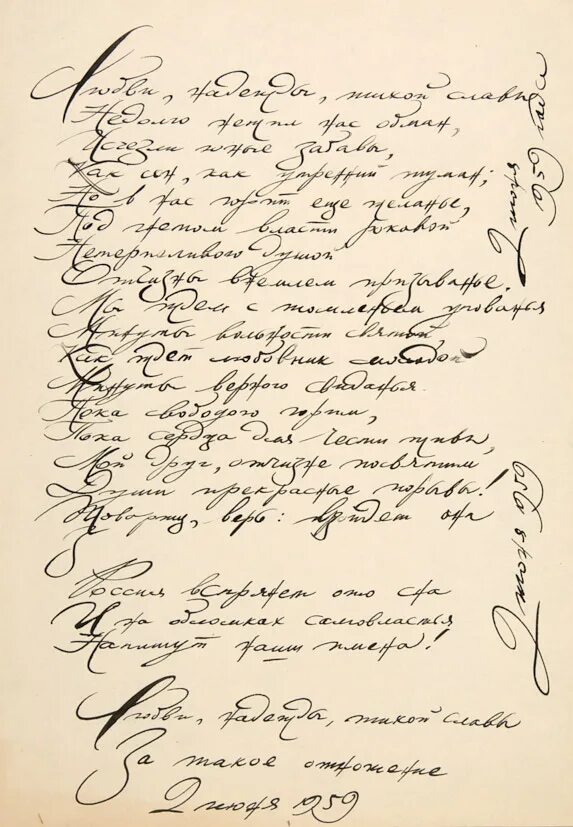 Любви, надежды, тихой славы
Недолго нежил нас обман,
Исчезли юные забавы,
Как сон, как утренний туман;
Но в нас горит еще желанье,
Под гнетом власти роковой
Нетерпеливою душой
Отчизны внемлем призыванье.
Мы ждем с томленьем упованья
Минуты вольности святой
Как ждет любовник молодой
Минуты верного свиданья.
Пока свободою горим,
Пока сердца для чести живы,
Мой друг, отчизне посвятим
Души прекрасные порывы!
Товарищ, верь: взойдет она
З
Россия вспрянет ото сна
И на обломках самовластья
Напишут наши имена!
Любви, надежды, тихой славы
За такое отношение
2 июня 1959